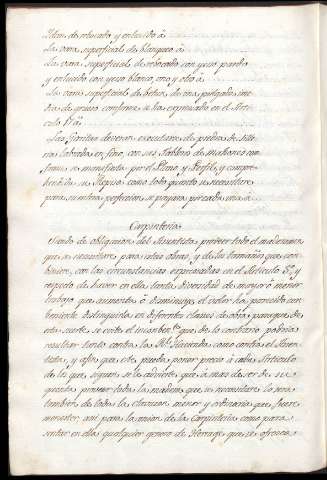 Idem de revocado y enlucido à
La vara superficial de blanqueo à
La vara superficial de rebocado con yeso pardo
y enlucido con yeso blanco, uno y otro à
La vara superficial de betun, de una pulgada
de grueso conforme se ha expresado en el Arti-
culo
Las deveran executarse de piedra de sille-
ria labrada en fino, con sus tablones de
forme se manifiesta por el Plano, y Perfil, y
como todo quanto se necesitare
para su entera perfeccion se pagara por cada una à
Carpinteria
Siendo de obligacion del Asentista proveer todo el maderamen
que se necesitare para estas obras, y de los tamaños que con-
biniere, con las circunstancias expresadas en el Articulo 8º, y
respecto de haver en ella tanta diversidad de mayor ô menor
trabajo que aumenta ô disminuye el valor ha parecido con-
beniente distinguirla en diferentes clases de obra, para que de
esta suerte se evite el que de lo contrario podria
resultar tanto contra la Rl. Hacienda como contra el Asen-
tista, y afin que este pueda poner precio à cada Articulo
de los que siguen se le advierte que à mas de ser de su
quenta proveer toda la madera que se necesitare lo sera
tambien de toda la clavazon menor y ordinaria que fuere
menester, asi para la union de la Carpinteria como para
sentar en ella qualquier genero de Herrage que se ofrezca: